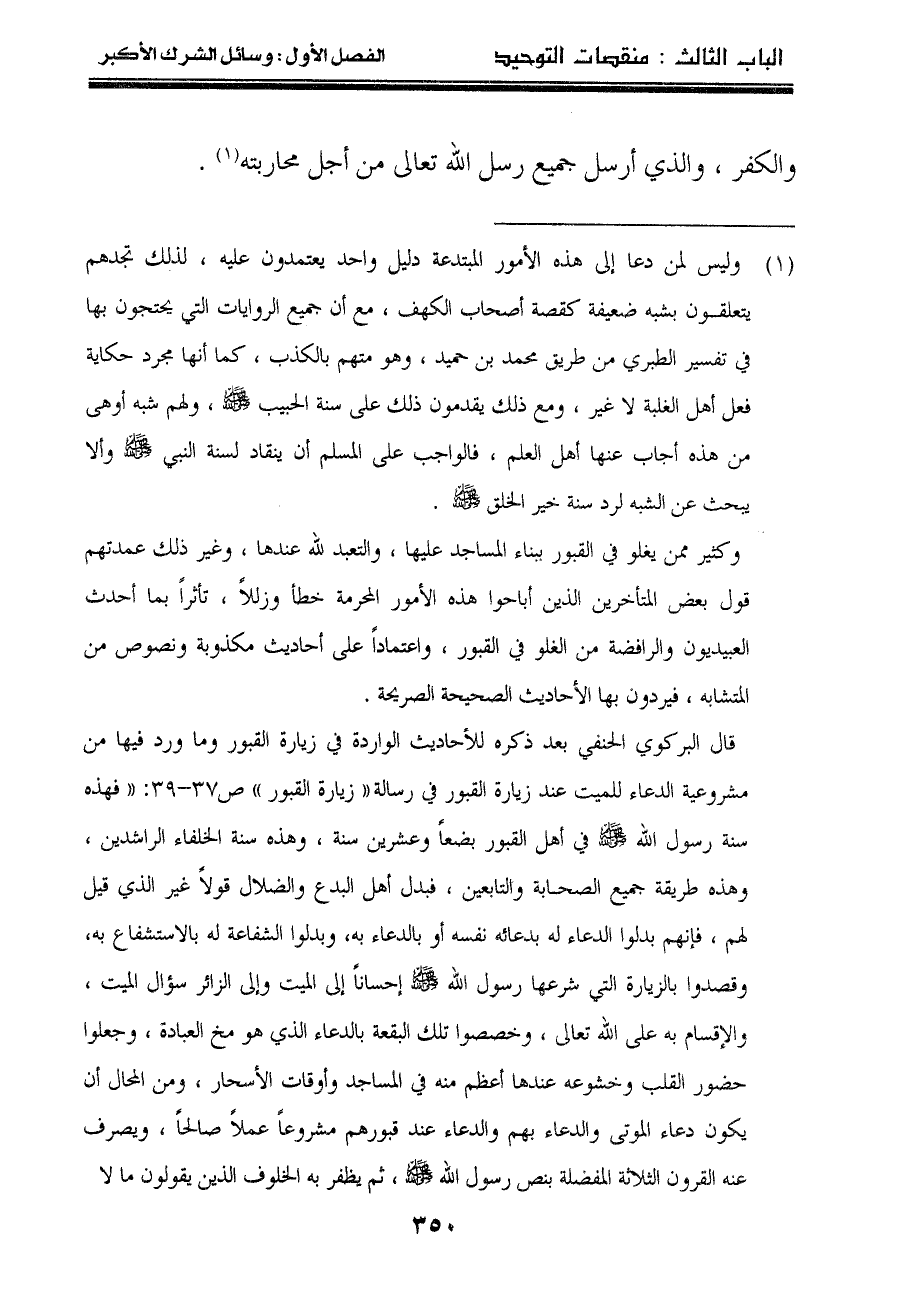 الباب الثالث : منقصات التوحيد الفصل الأول : وسائل الشرك الأكبر
والكفر ، والذي أرسل جميع رسل الله تعالى من أجل محاربته(١) .
(١) وليس لمن دعا إلى هذه الأمور المبتدعة دليل واحد يعتمدون عليه ، لذلك تجدهم
يتعلقـون بشبه ضعيفة كقصة أصحاب الكهف ، مع أن جميع الروايات التي يحتجون بها
في تفسير الطبري من طريق محمد بن حميد ، وهو متهم بالكذب ، كما أنها مجرد حكاية
فعل أهل الغلبة لا غير ، ومع ذلك يقدمون ذلك على سنة الحبيب ﷺ ، ولهم شبه أوهى
من هذه أجاب عنها أهل العلم ، فالواجب على المسلم أن ينقاد لسنة النبي ﷺ وألا
يبحث عن الشبه لرد سنة خير الخلق ﷺ .
وكثير ممن يغلو في القبور ببناء المساجد عليها ، والتعبد لله عندها ، وغير ذلك عمدتهم
قول بعض المتأخرين الذين أباحوا هذه الأمور المحرمة خطأ وزللاً ، تأثراً بما أحدث
العبيديون والرافضة من الغلو في القبور ، واعتماداً على أحاديث مكذوبة ونصوص من
المتشابه ، فيردون بها الأحاديث الصحيحة الصريحة .
قال البركوي الحنفي بعد ذكره للأحاديث الواردة في زيارة القبور وما ورد فيها من
مشروعية الدعاء للميت عند زيارة القبور في رسالة « زيارة القبور » ص٣٧–٣٩: « فهذه
سنة رسول الله ﷺ في أهل القبور بضعاً وعشرين سنة ، وهذه سنة الخلفاء الراشدين ،
وهذه طريقة جميع الصحـابة والتابعين ، فبدل أهل البدع والضلال قولاً غير الذي قيل
لهم ، فإنهم بدلوا الدعاء له بدعائه نفسه أو بالدعاء به، وبدلوا الشفاعة له بالاستشفاع به،
وقصدوا بالزيارة التي شرعها رسول الله ﷺ إحساناً إلى الميت وإلى الزائر سؤال الميت ،
والإقسام به على الله تعالى ، وخصصوا تلك البقعة بالدعاء الذي هو مخ العبادة ، وجعلوا
حضور القلب وخشوعه عندها أعظم منه في المساجد وأوقات الأسحار ، ومن المحال أن
يكون دعاء الموتى والدعاء بهم والدعاء عند قبورهم مشروعاً عملاً صالحاً ، ويصرف
عنه القرون الثلاثة المفضلة بنص رسول الله ﷺ ، ثم يظفر به الخلوف الذين يقولون ما لا
٣٥٠